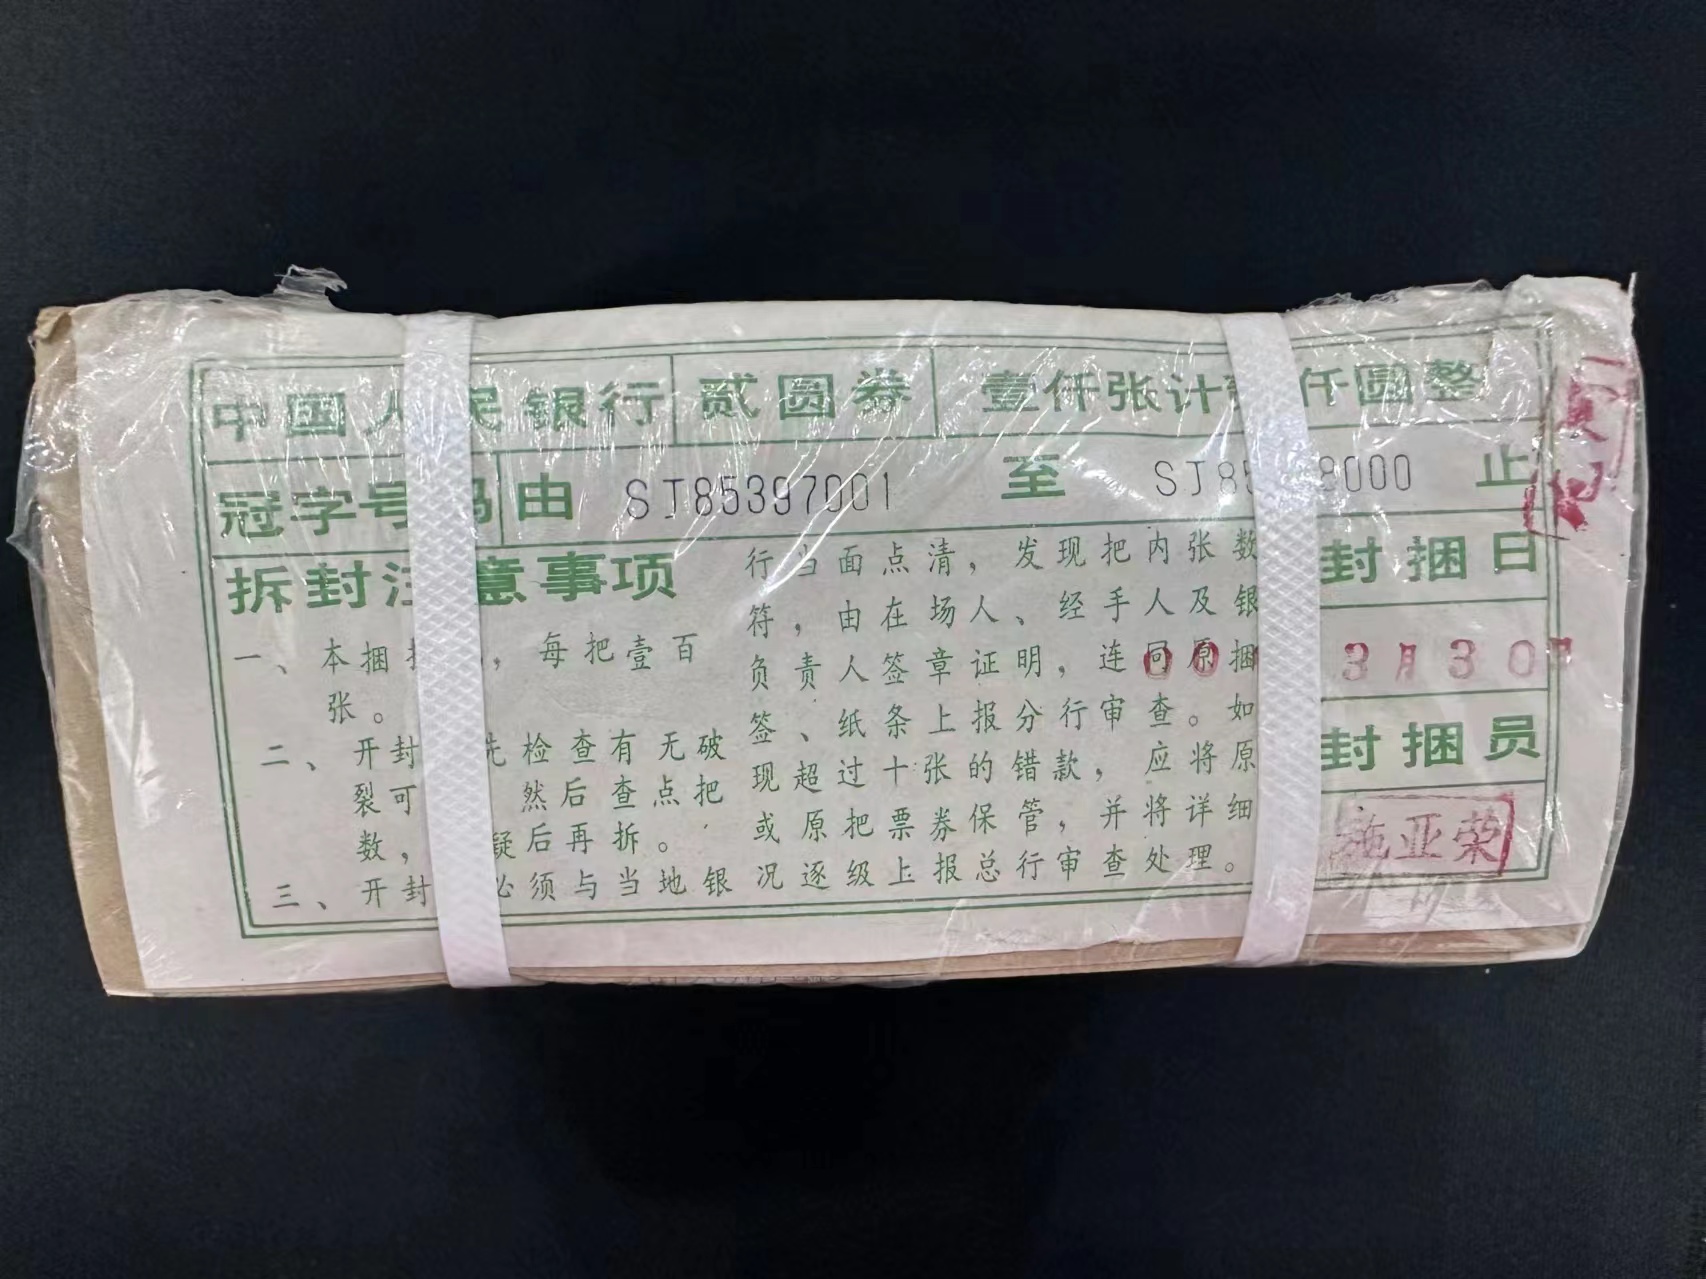 中国人民银行 贰圆券 壹仟张计 仟圆整
冠字号码 由 SJ85397001 至 SJ85 8000 止
拆封注意事项
一、本捆 , 每把壹百
张。
二、开封 先检查有无破
裂可 然后查点把
数, 疑后再拆。
三、开封 必须与当地银
行当面点清,发现把内张数
符,由在场人、经手人及银
负责人签章证明,连同原捆
签、纸条上报分行审查。如
现超过十张的错款,应将原
或原把票券保管,并将详细
况逐级上报总行审查处理。
封捆日
00 3月30
封捆员
施亚荣